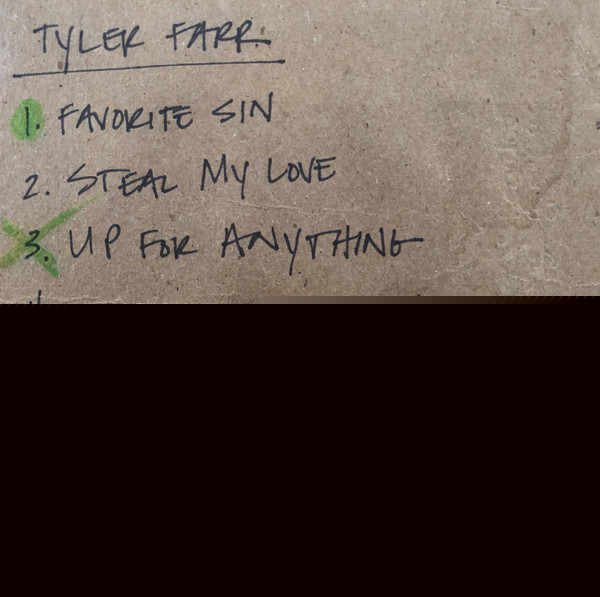 TYLER FARR
1. FAVORITE SIN
2. STEAL MY LOVE
3. UP FOR ANYTHING